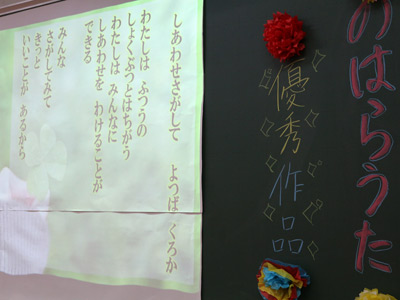 のはらうた
優秀作品
しあわせさがして　よつば くろか
わたしは ふつうの
しょくぶつとはちがう
わたしは みんなに
しあわせを わけることが
できる
みんな
さがしてみて
きっと
いいことが あるから